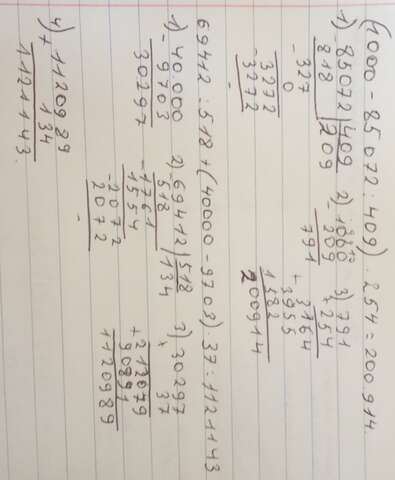 (1000 - 85072 : 409) · 254 = 200.914
1) -85072 | 409 2) 1000 3) 791
818 | 209 - 209 × 254
- 327 791 3164
0 + 3955
3272 1582
- 3272 200914
-
69412 : 518 + (40000 - 9703) 37 : 1121143
1) 40.000 2) 69412 | 518 3) 30297
- 9703 - 518 | 134 × 37
30297 - 1761 + 212079
1554 90891
- 2072 1120989
2072
-
4) 1120989
+ 134
1121143.